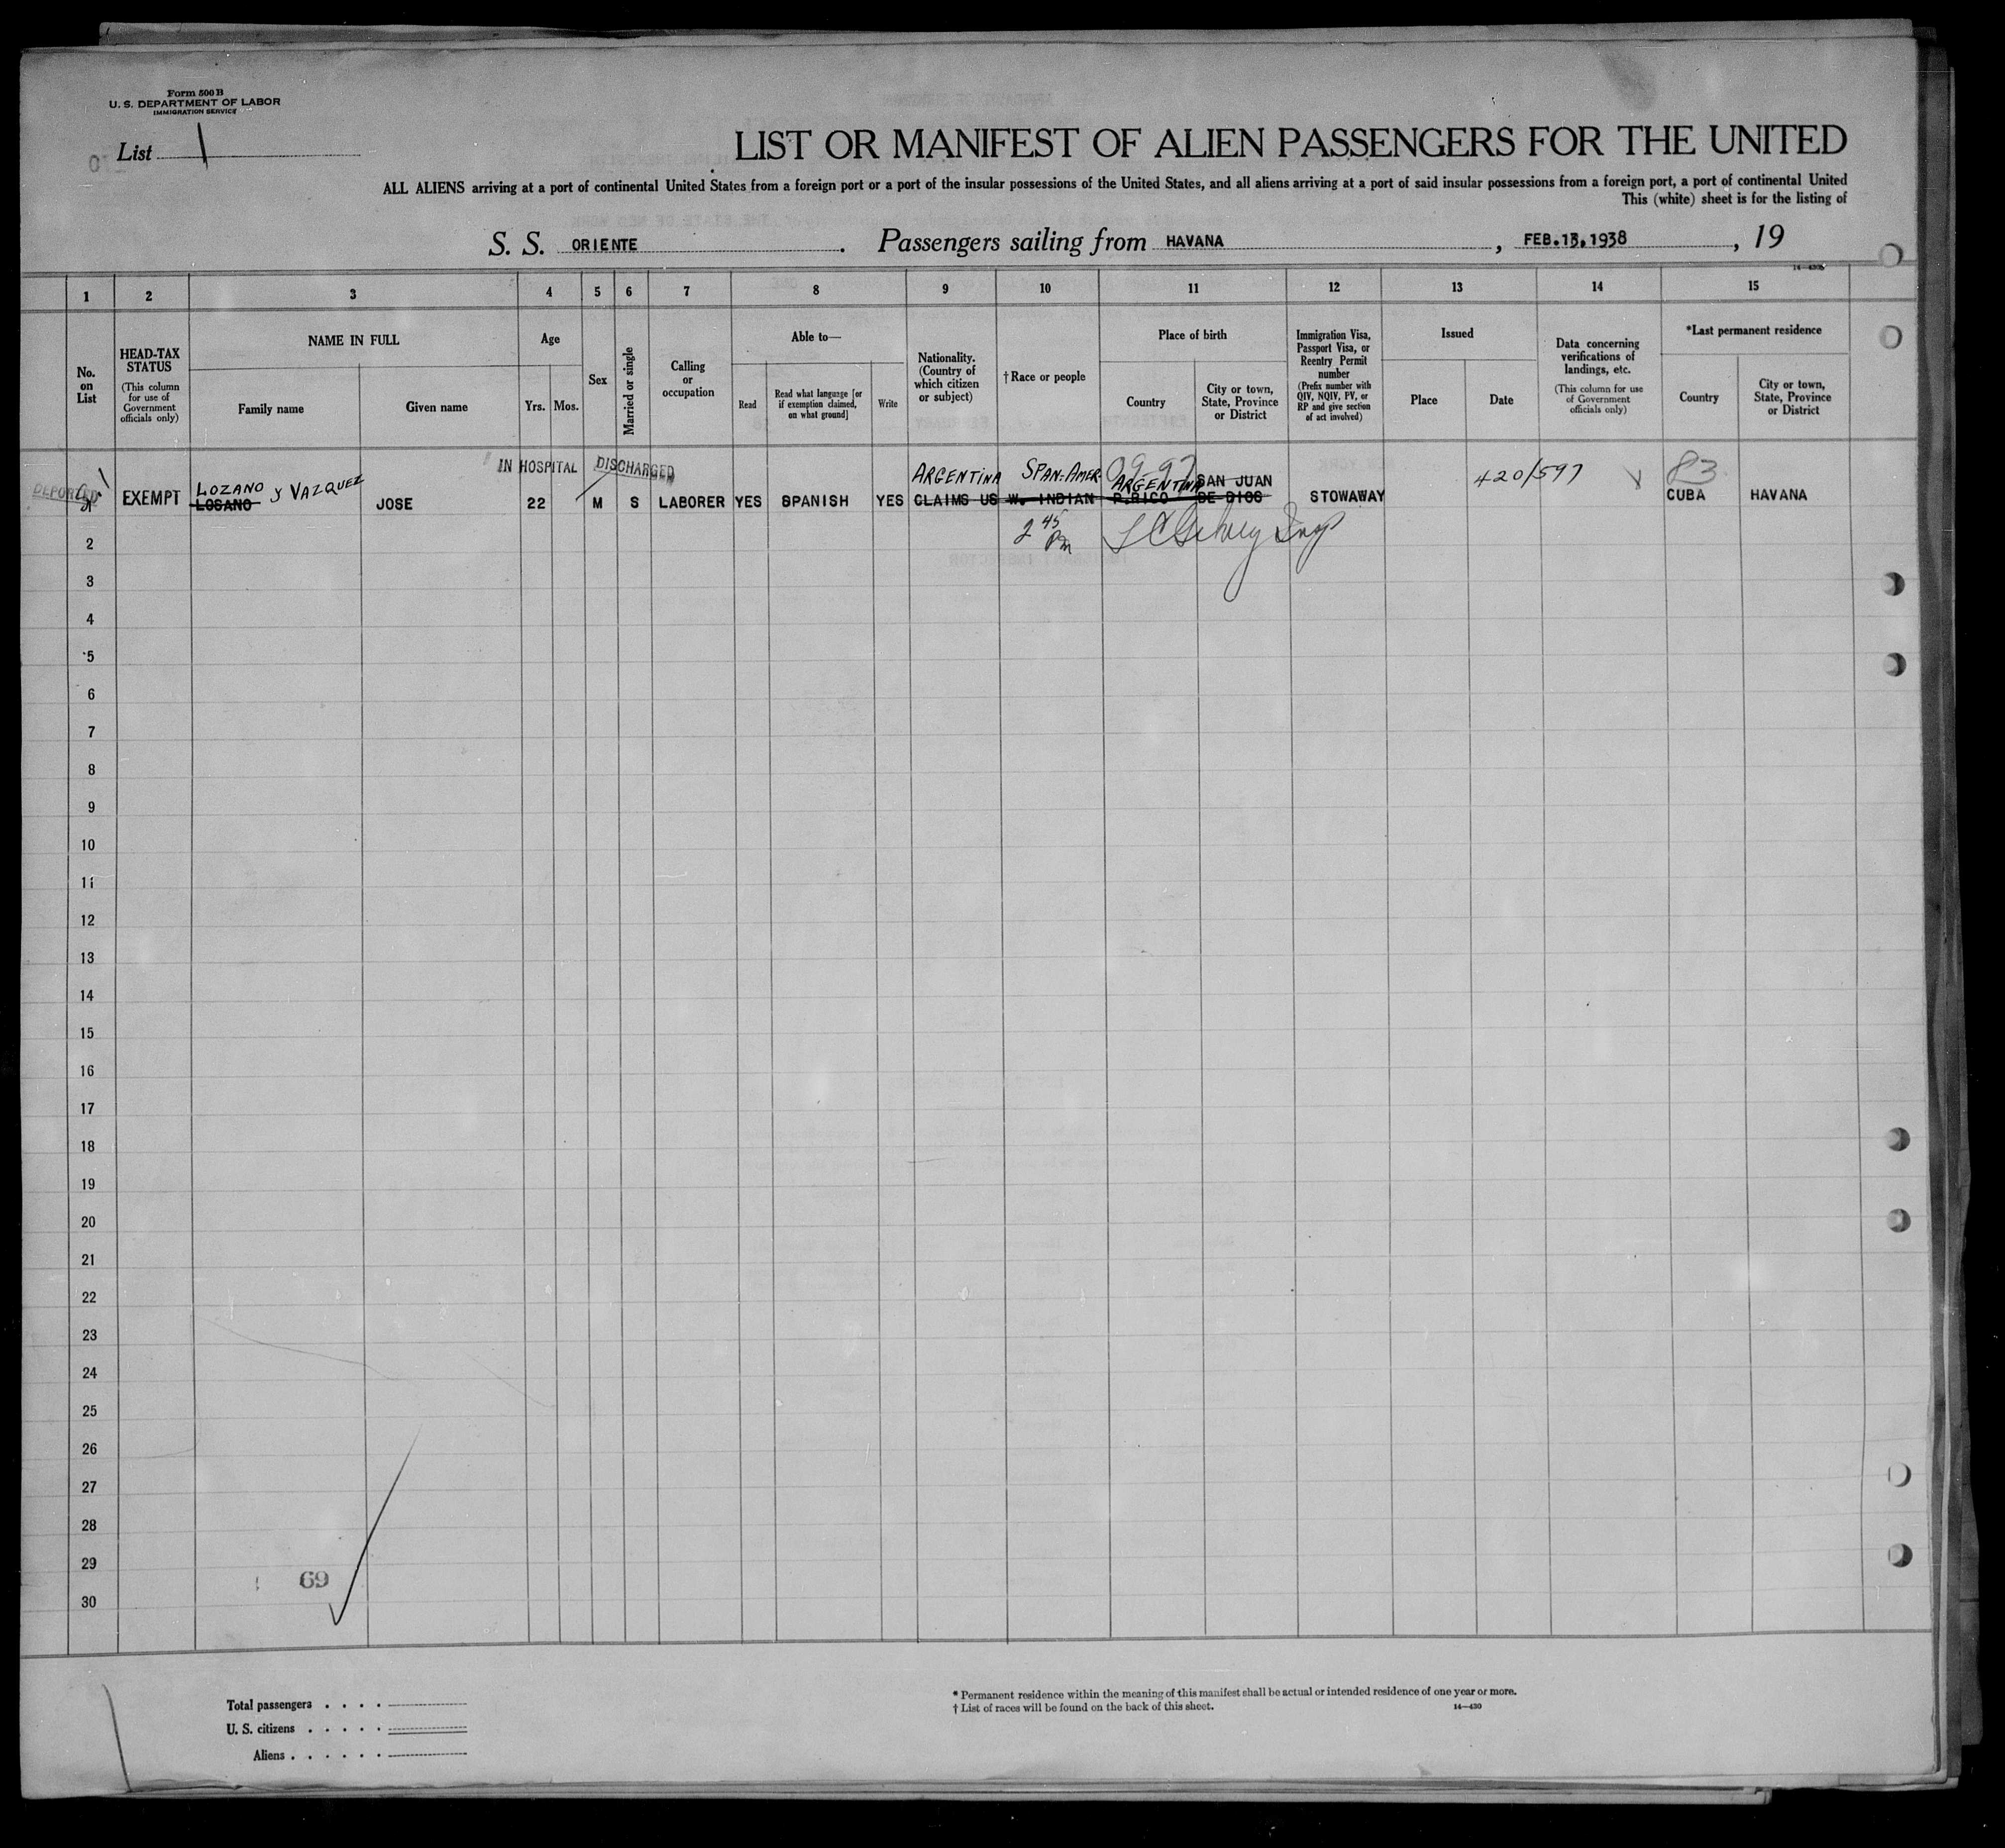 Form 500 B
U. S. DEPARTMENT OF LABOR
IMMIGRATION SERVICE
List 1
LIST OR MANIFEST OF ALIEN PASSENGERS FOR THE UNITED
ALL ALIENS arriving at a port of continental United States from a foreign port or a port of the insular possessions of the United States, and all aliens arriving at a port of said insular possessions from a foreign port, a port of continental United
This (white) sheet is for the listing of
S. S. ORIENTE. Passengers sailing from HAVANA, FEB.13,1938, 19
1 2 3 4 5 6 7 8 9 10 11 12 13 14 15
No. on List
HEAD-TAX STATUS (This column for use of Government officials only)
NAME IN FULL
Family name
Given name
Age
Yrs. Mos.
Sex
Married or single
Calling or occupation
Able to—
Read
Read what language [or if exemption claimed, on what ground]
Write
Nationality. (Country of which citizen or subject)
†Race or people
Place of birth
Country
City or town, State, Province or District
Immigration Visa, Passport Visa, or Reentry Permit number (Prefix number with QIV, NQIV, PV, or RP and give section of act involved)
Issued
Place
Date
Data concerning verifications of landings, etc. (This column for use of Government officials only)
*Last permanent residence
Country
City or town, State, Province or District
IN HOSPITAL DISCHARGED
LOZANO y VAZQUEZ ARGENTINA SPAN-AMER 99-97 ARGENTINA SAN JUAN 420/597 83
DEPORTED EXEMPT LOSANO JOSE 22 M S LABORER YES SPANISH YES CLAIMS US W. INDIAN P.RICO DE DIOS STOWAWAY CUBA HAVANA
2 45 Pm
2
3
4
5
6
7
8
9
10
11
12
13
14
15
16
17
18
19
20
21
22
23
24
25
26
27
28
29
69
30
Total passengers . . . .
U. S. citizens . . . . .
Aliens . . . . . .
* Permanent residence within the meaning of this manifest shall be actual or intended residence of one year or more.
† List of races will be found on the back of this sheet. 14—430